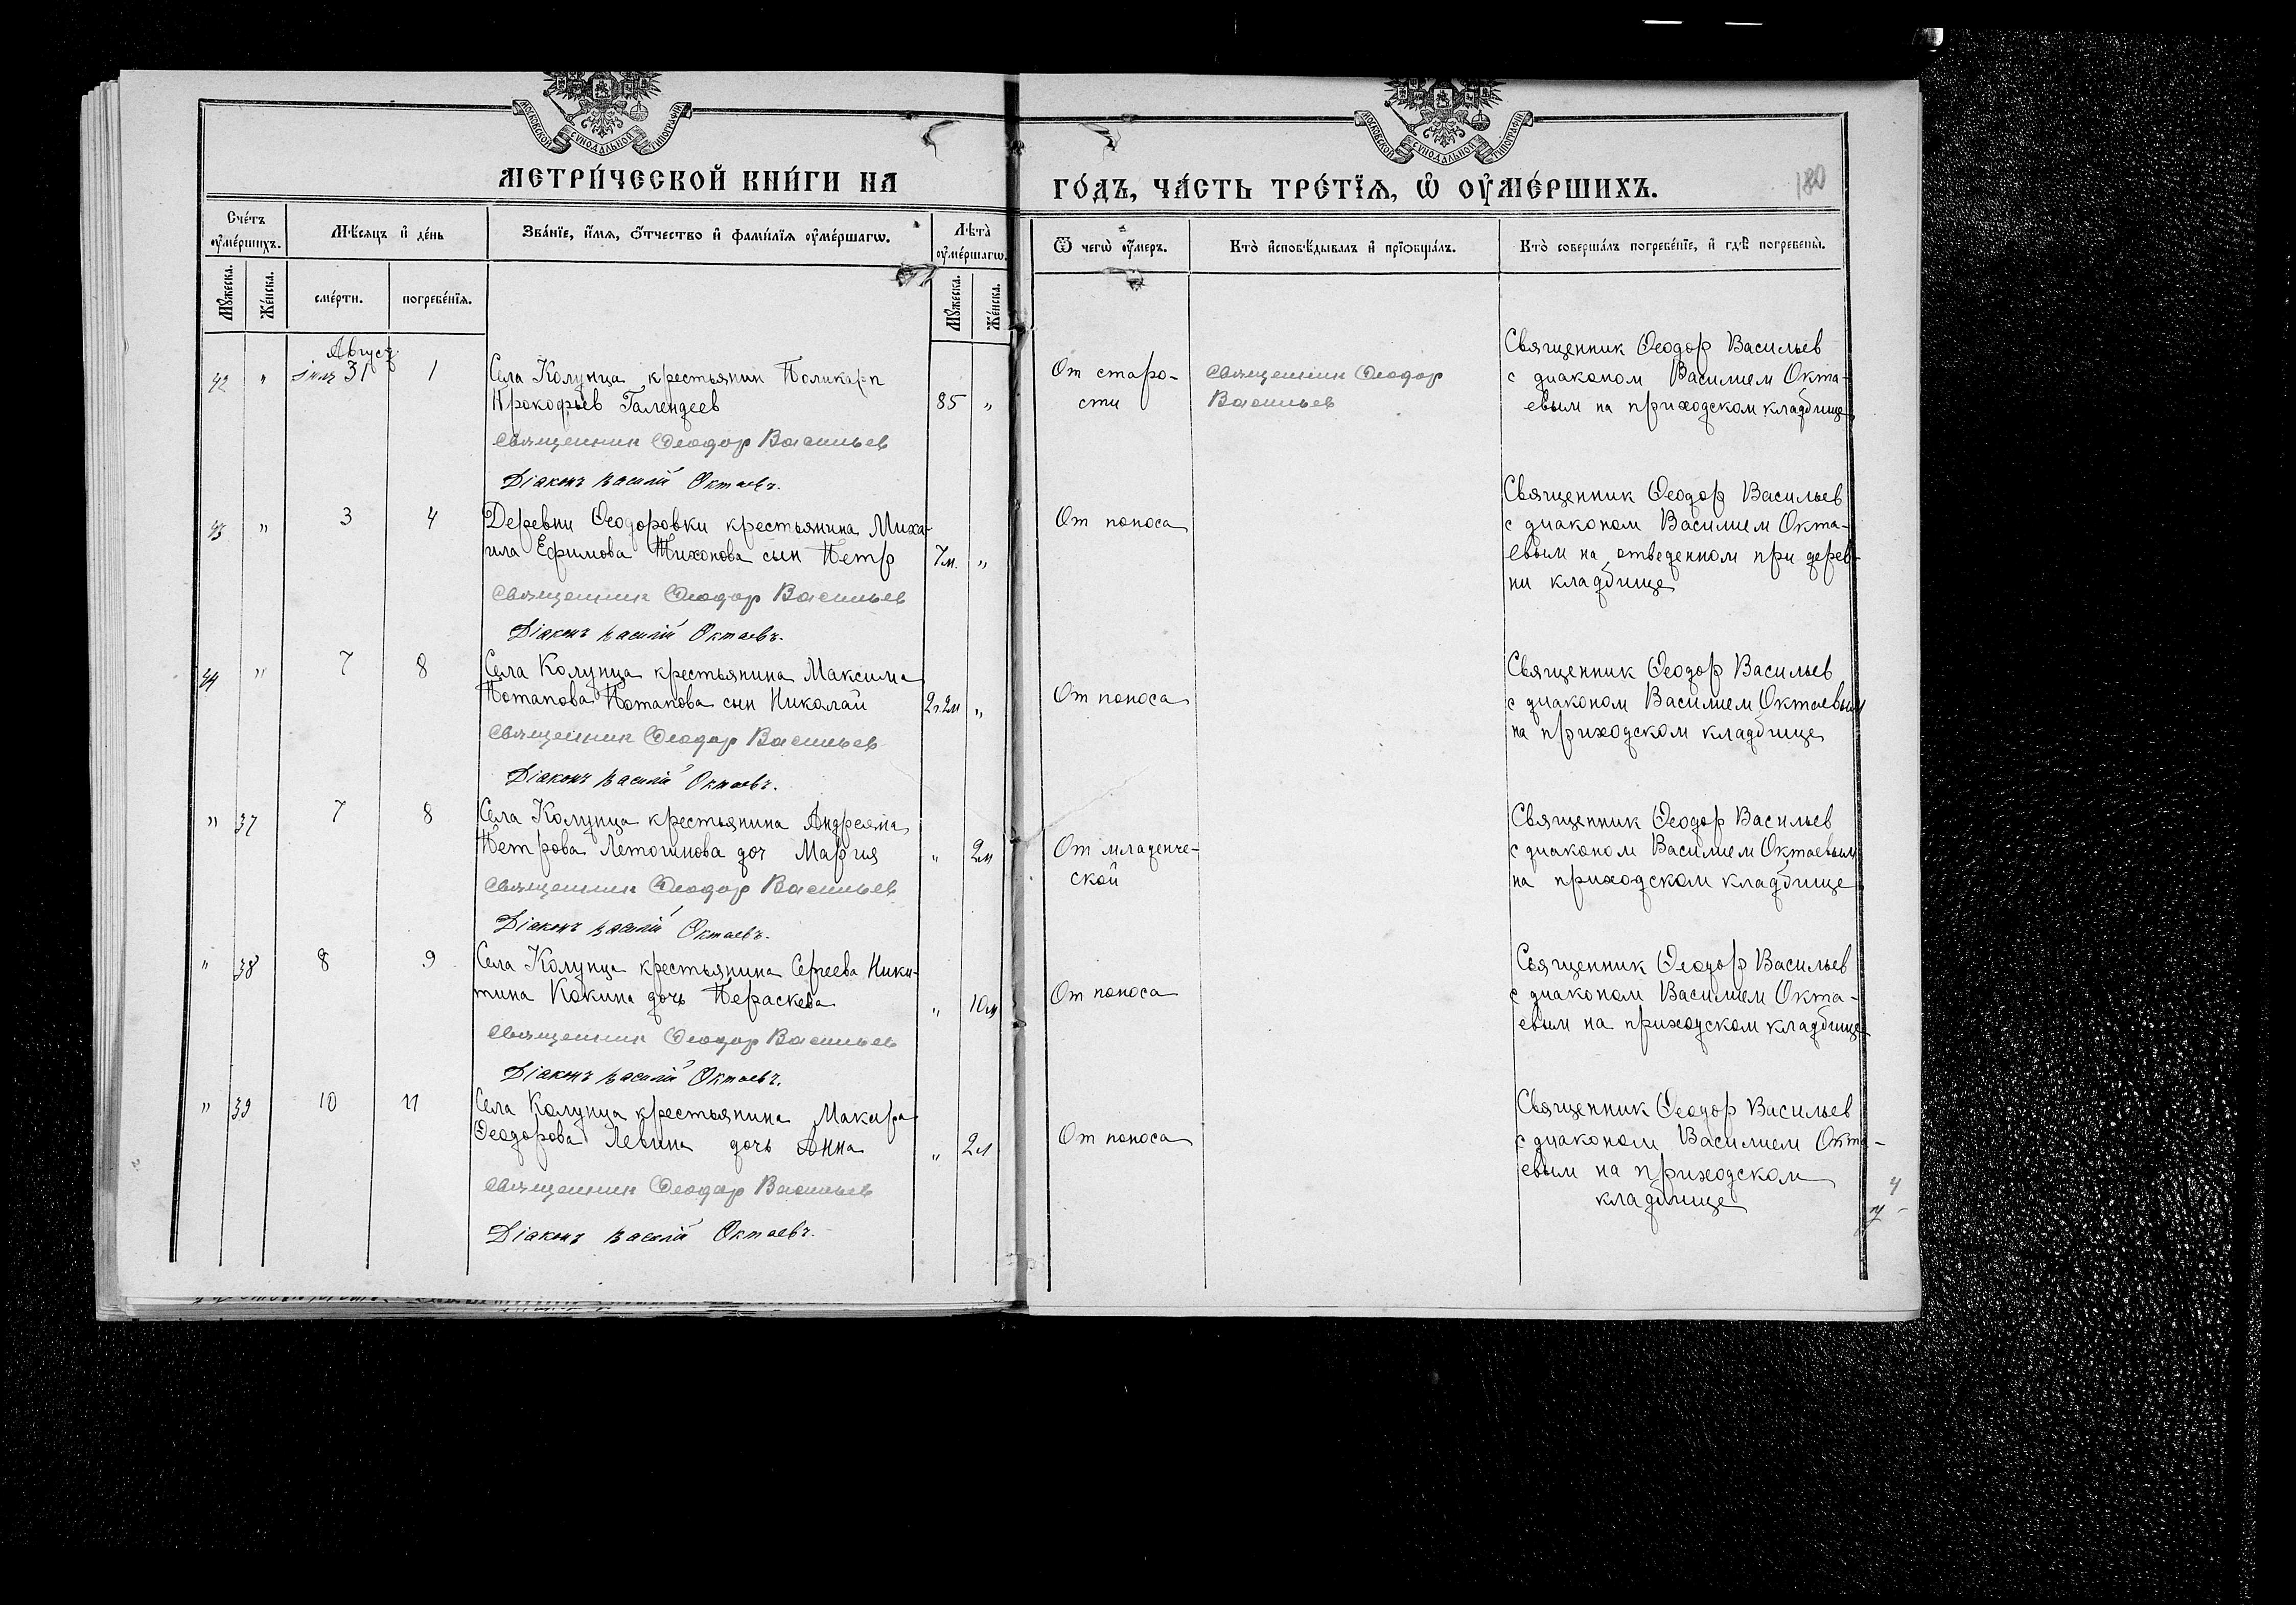 МОСКОВСКОЙ СѴНОДАЛЬНОЙ ТИПОГРАФІИ
МОСКОВСКОЙ СѴНОДАЛЬНОЙ ТИПОГРАФІИ
МЕТРИ́ЧЕСКОЙ КНИ́ГИ НА
ГО́ДЪ, ЧА́СТЬ ТРЕ́ТЇѦ, Ѡ҆ ОУ҆МЕ́РШИХЪ.
180
Сче́тъ оу҆ме́ршихъ.
Мѣ́сѧцъ и҆ де́нь
Зва́нїе, и҆́мѧ, ѻ҆́тчество и҆ фами́лїѧ оу҆ме́ршагѡ.
Лѣ́та̀ оу҆ме́ршагѡ.
Ѿ чегѡ̀ оу҆́меръ.
Кто̀ и҆сповѣ́дывалъ и҆ прїѡбща́лъ.
Кто̀ соверша́лъ погребе́нїе, и҆ гдѣ̀ погребены̀.
Мꙋ́жеска.
Же́нска.
сме́рти.
погребе́нїѧ.
Мꙋ́жеска.
Же́нска.
Август
42 " 31 1 Села Колунца крестьянин Поликарп
Прокофьев Галендеев 85 "
Священник Ѳеодор Васильев
Діаконъ Василій Октаевъ.
От старо-
сти
Священник Ѳеодор
Васильев
Священник Ѳеодор Васильев
с диаконом Василием Окта-
евым на приходском кладбище
43 " 3 4 Деревни Ѳеодоровки крестьянина Миха-
ила Ефимова Тихонова сын Петр 7м. "
Священник Ѳеодор Васильев
Діаконъ Василій Октаевъ.
От поноса
Священник Ѳеодор Васильев
с диаконом Василием Окта-
евым на отведенном при дерев-
ни кладбище
44 " 7 8 Села Колунца крестьянина Максима
Потапова Потапова сын Николай 2г.2м "
Священник Ѳеодор Васильев
Діаконъ Василій Октаевъ.
От поноса
Священник Ѳеодор Васильев
с диаконом Василием Октаевым
на приходском кладбище
" 37 7 8 Села Колунца крестьянина Андреяна
Петрова доч Мария " 2м
Священник Ѳеодор Васильев
Діаконъ Василій Октаевъ.
От младенче-
ской
Священник Ѳеодор Васильев
с диаконом Василием Октаевым
на приходском кладбище
" 38 8 9 Села Колунца крестьянина Сергеева Ники-
тина Кокина дочь Пераскева " 10м
Священник Ѳеодор Васильев
Діаконъ Василій Октаевъ.
От поноса
Священник Ѳеодор Васильев
с диаконом Василием Окта-
евым на приходском кладбище
" 39 10 11 Села Колунца крестьянина Макара
Ѳеодорова Левина дочь Анна " 2л
Священник Ѳеодор Васильев
Діаконъ Василій Октаевъ.
От поноса
Священник Ѳеодор Васильев
с диаконом Василием Окта-
евым на приходском
кладбище